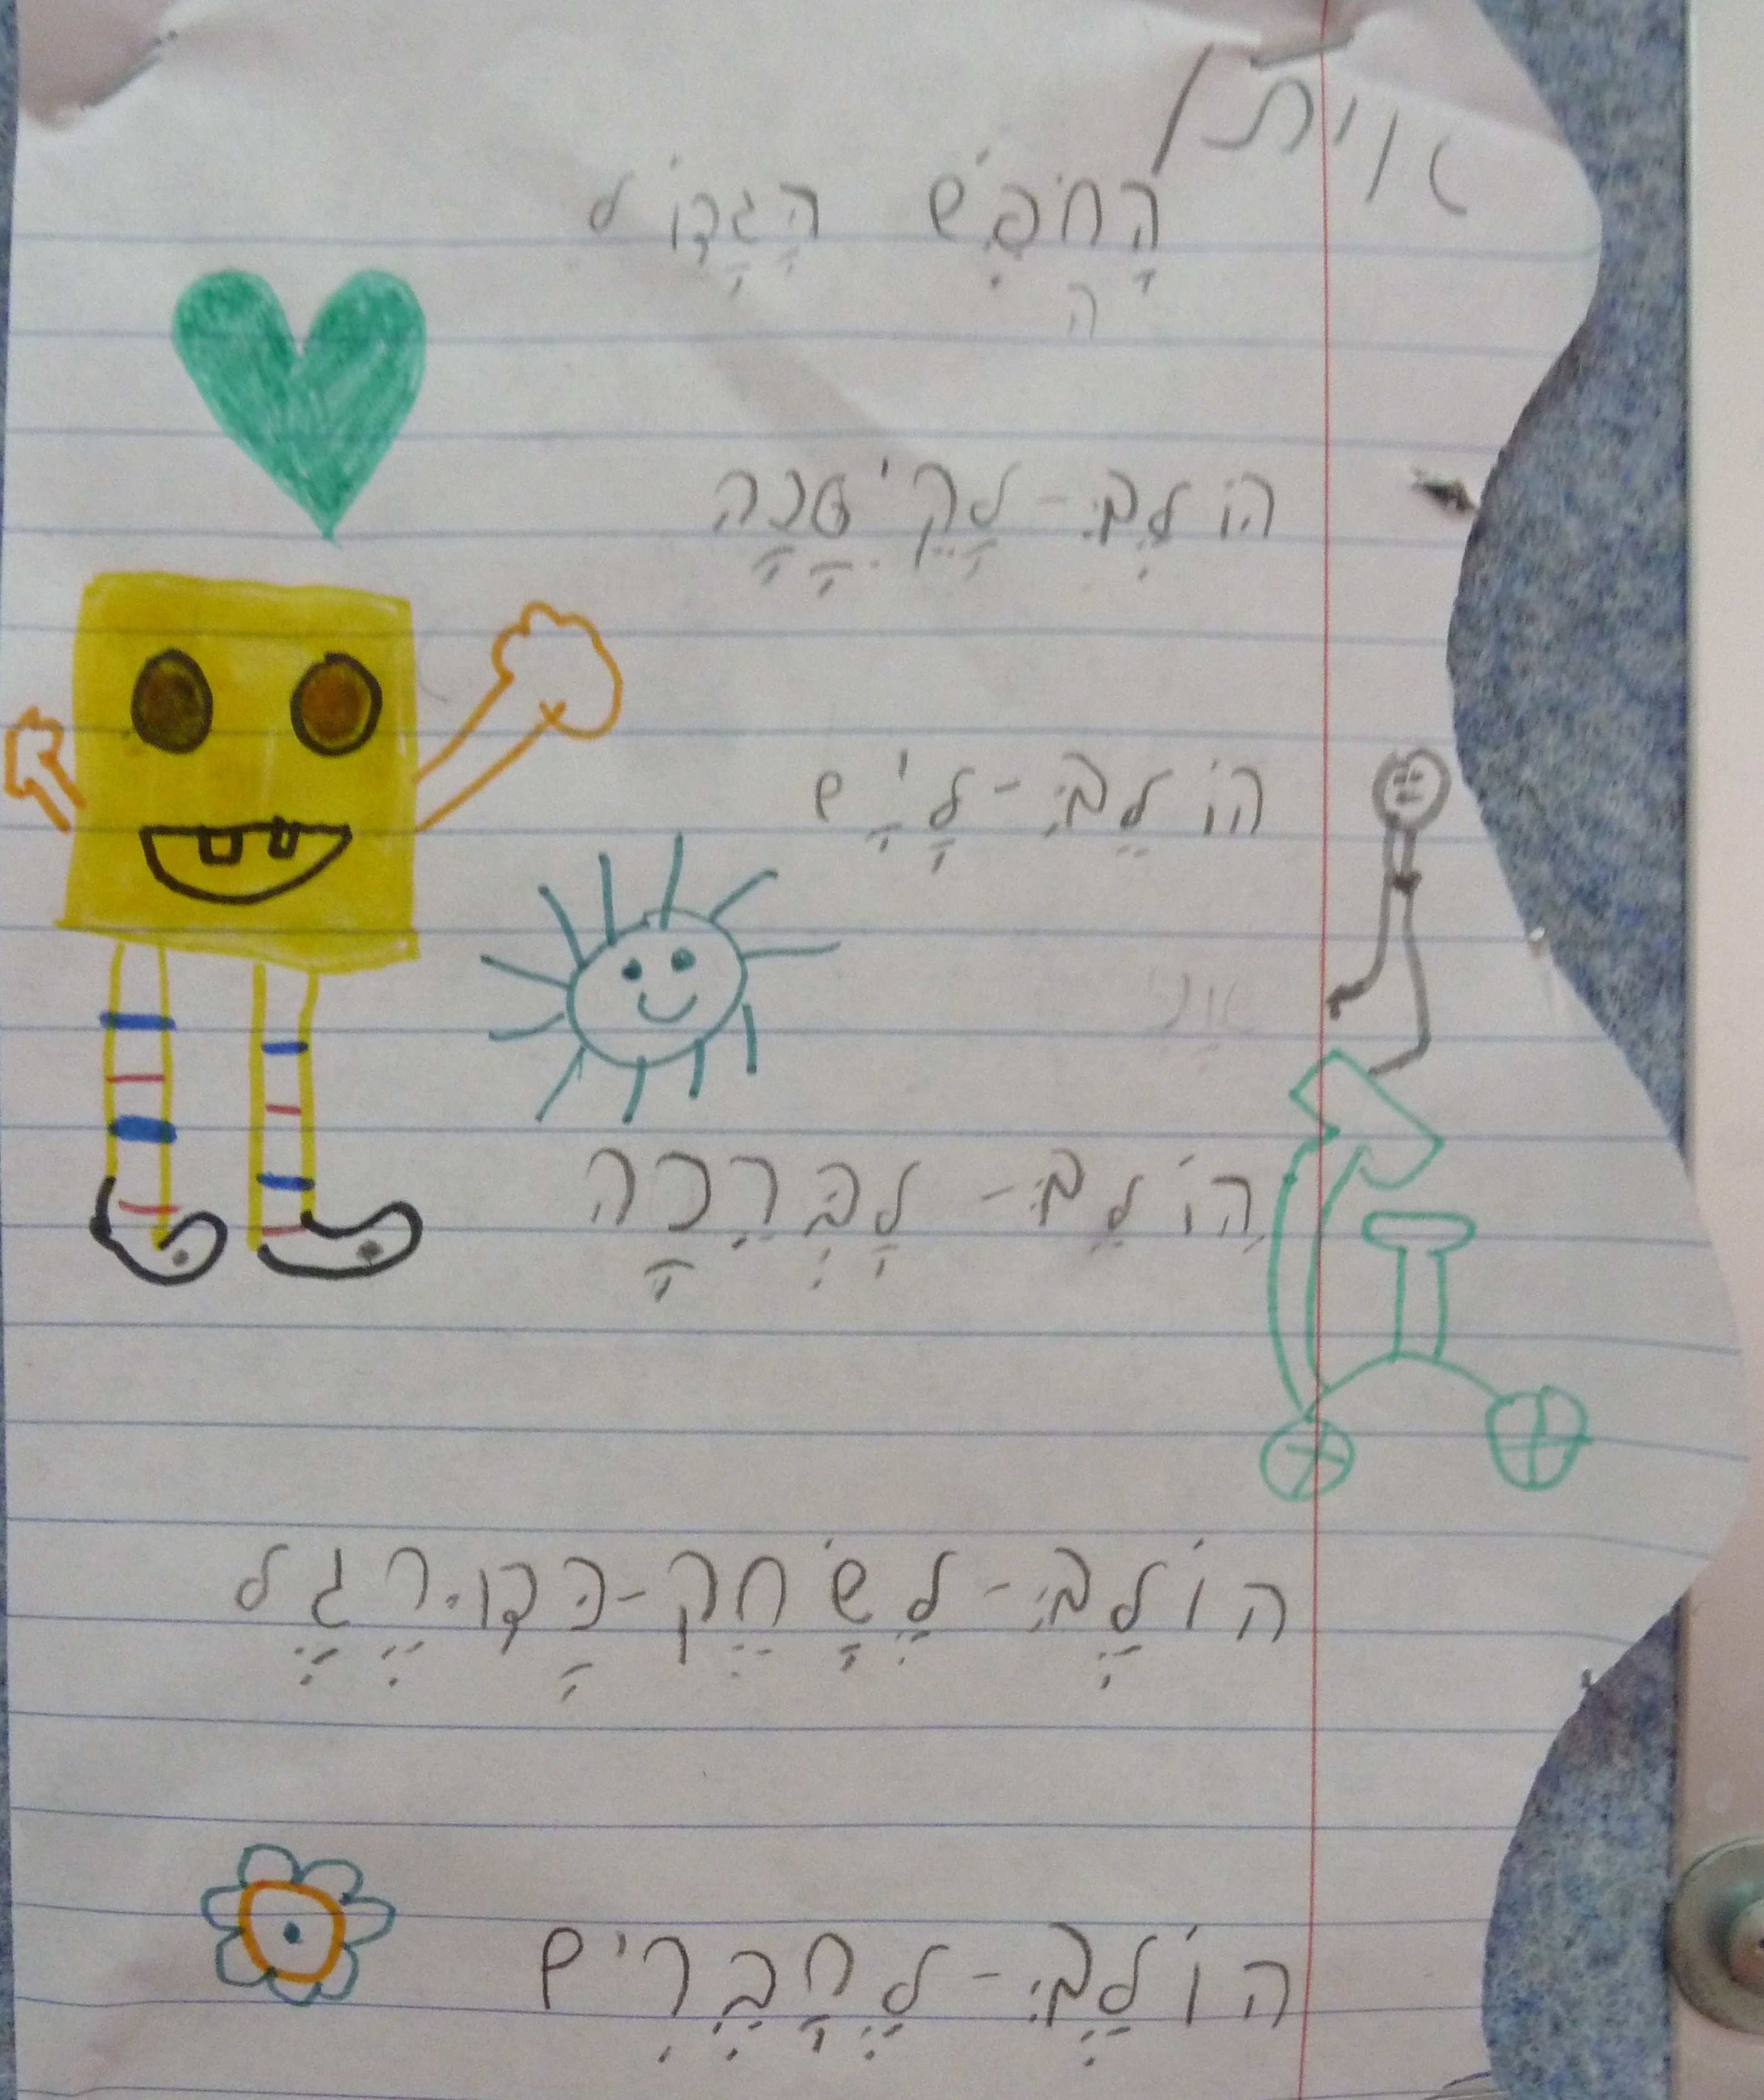 איתן
החופש הגדול
ה
הולך-לקיטנה
הולך-לים
הולך-לברכה
הולך-לשחק-כדורגל
הולך-לחברים